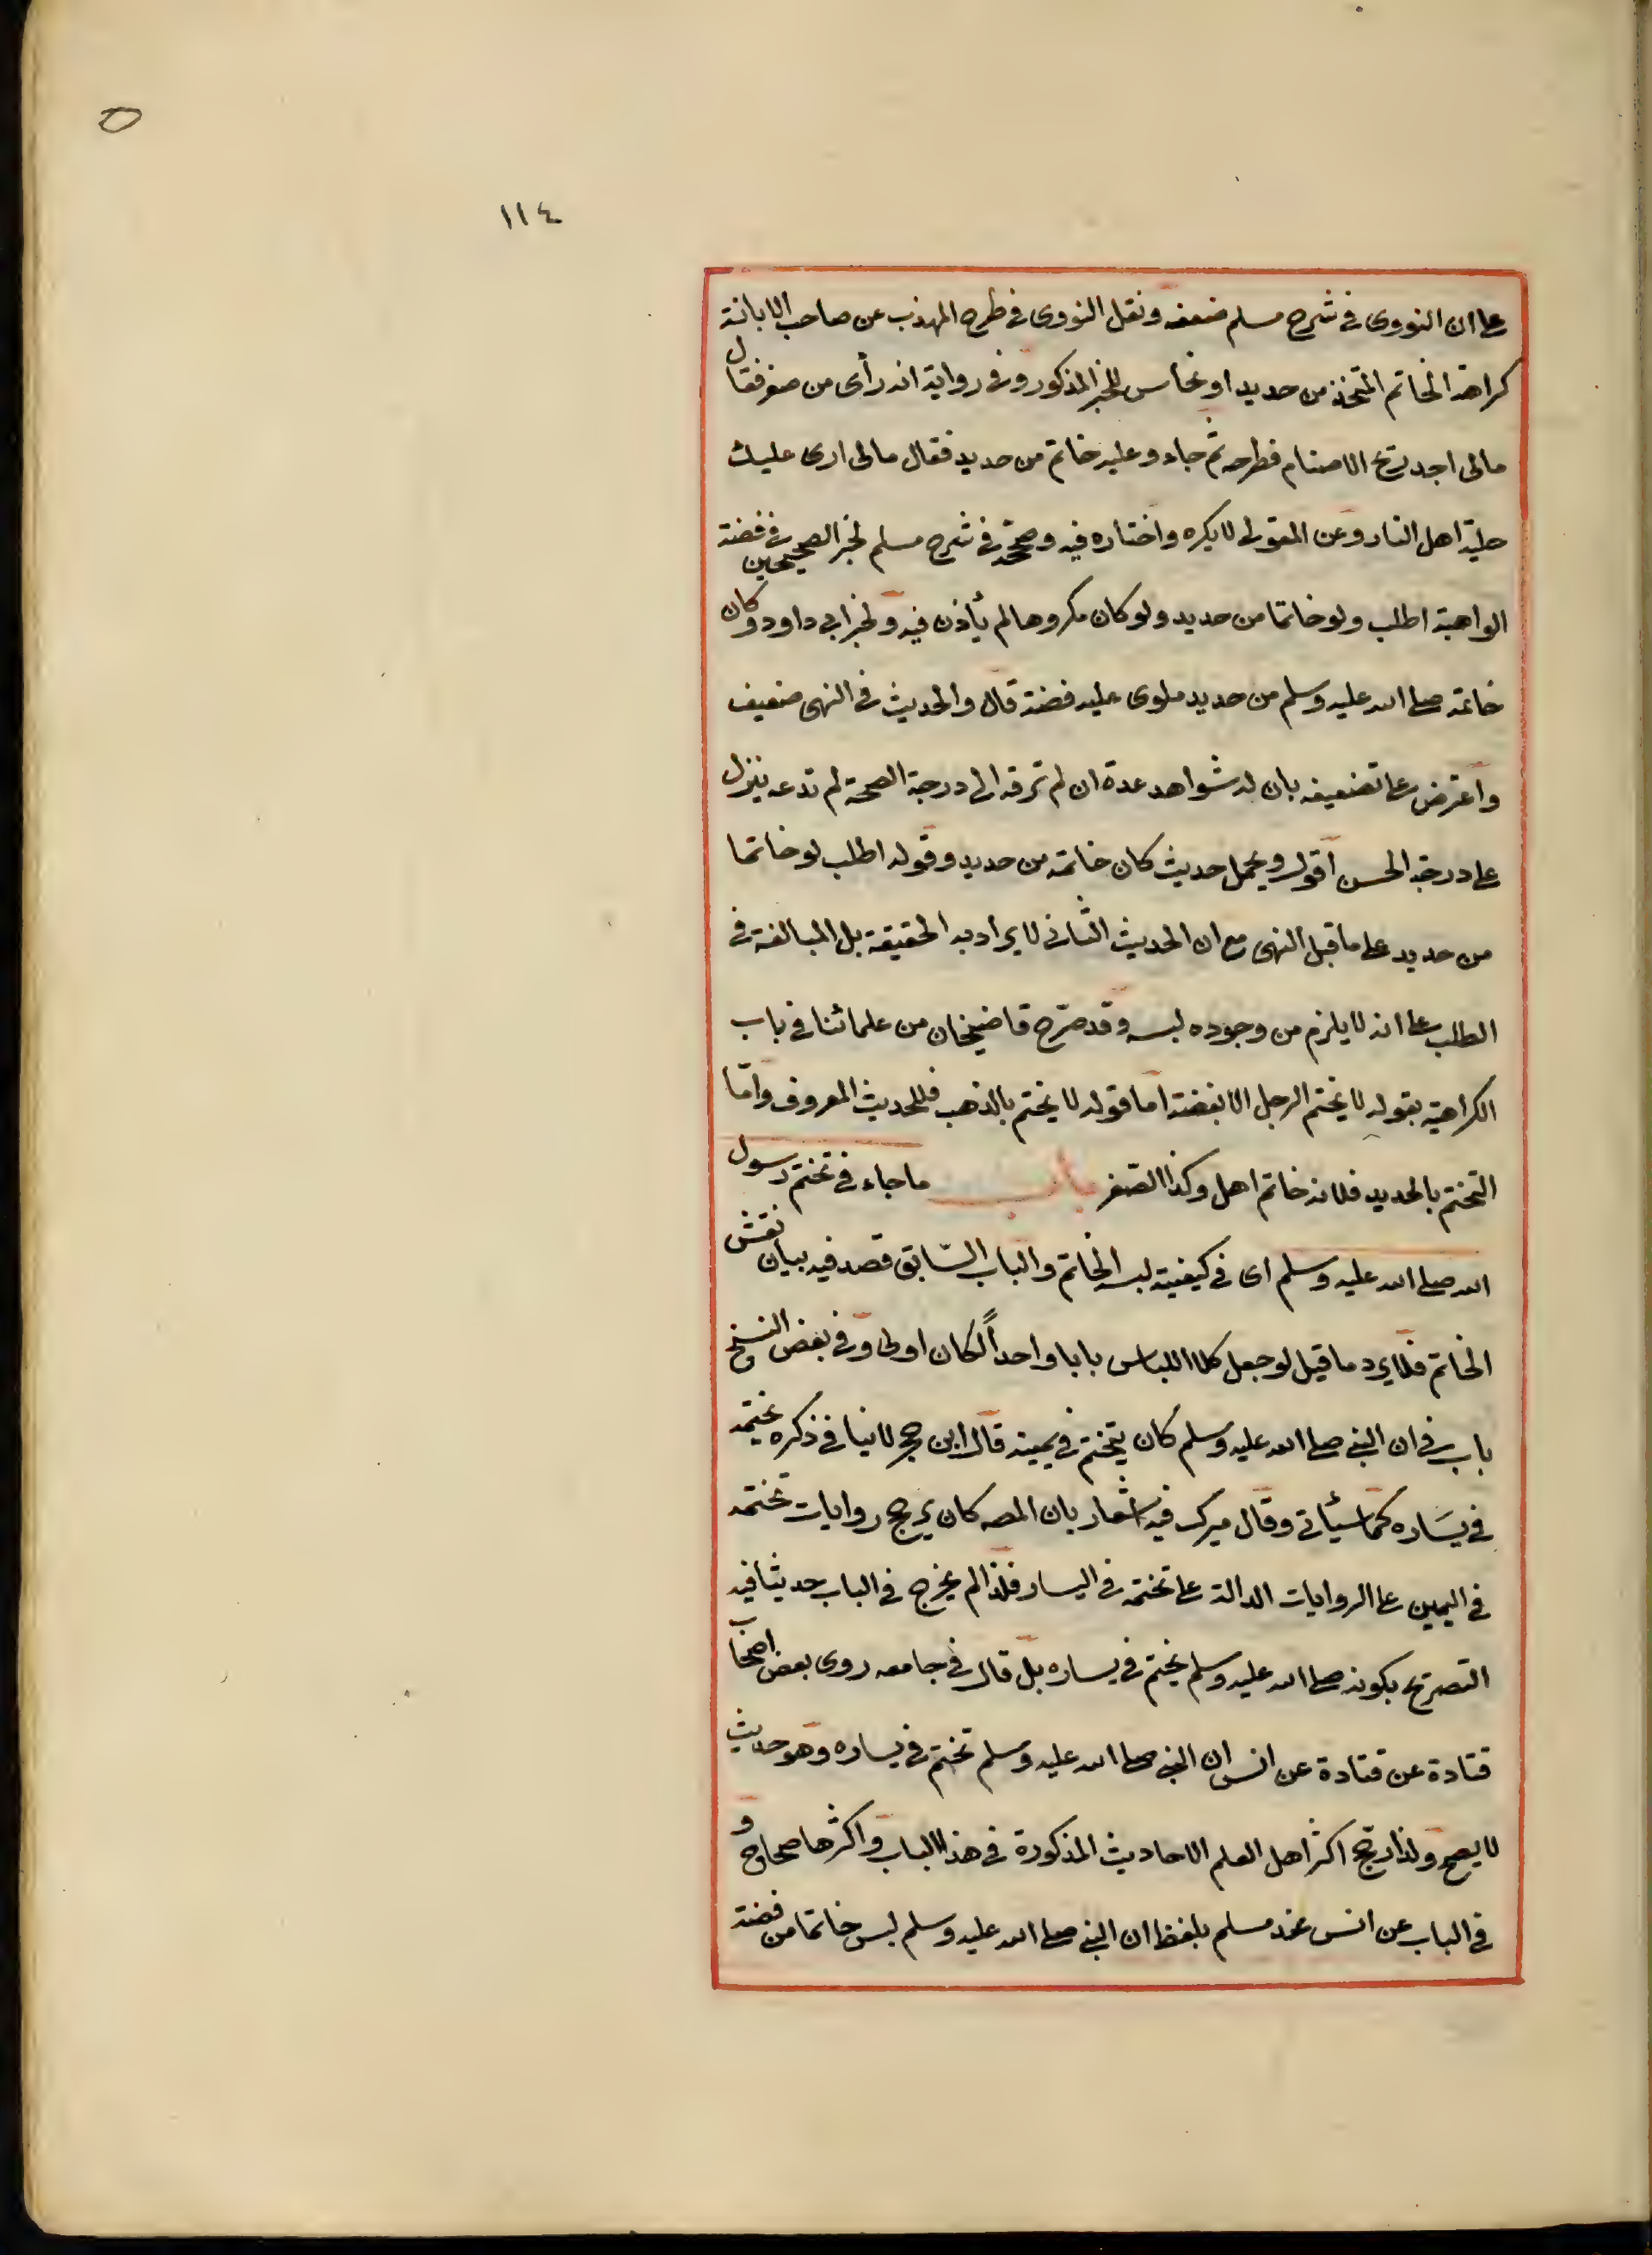 ١١٤
على ان النووى فى شرح مسلم ضعفه ونقل النووى فى طرح المهذب عن صاحب الابانة
كراهة الخاتم المتخذ من حديد او نحاس للخبر المذكور وفى رواية انه رأى من صفر فقال
مالى اجد ريح الاصنام فطرحه ثم جاء وعليه خاتم من حديد فقال مالى ارى عليك
حلية اهل النار وعن المتولى لايكره واختاره فيه وصححه فى شرح مسلم لخبر الصحيحين فى قصة
الواهبة اطلب ولو خاتما من حديد ولو كان مكروها لم يأذن فيه ولخبر ابى داود وكان
خاتمه صلى الله عليه وسلم من حديد ملوى عليه فضة قال والحديث فى النهى ضعيف
واعترض على تضعيفه بان له شواهد عدة ان لم ترقه الى درجة الصحة لم تدعه ينزل
على درجة الحسن اقول ويحمل حديث كان خاتمه من حديد وقوله اطلب لو خاتما
من حديد على ما قبل النهى مع ان الحديث الثانى لا يراد به الحقيقة بل المبالغة فى
الطلب على انه لايلزم من وجوده لبسه وقد صرّح قاضيخان من علمائنا فى باب
الكراهية بقوله لا يختم الرجل الا بفضة اما قوله لا يختم بالذهب فللحديث المعروف وامّا
التختم بالحديد فلانه خاتم اهل وكذا الصفر باب ما جاء فى تختم رسول
الله صلى الله عليه وسلم اى فى كيفية لبسه الخاتم والباب السّابق قصد فيه بيان نقش
الخاتم فلا يرد ما قيل لو جعل كلا اللباس بابا واحداً لكان اولى وفى بعض النسخ
باب فى ان النبى صلى الله عليه وسلم كان يتختم فى يمينه قال ابن حجر لا ينافى ذكره تختمه
فى يسَاره كما سيأتى وقال ميرك فيه اشعار بان المصه كان يرجح روايات تختمه
فى اليمين على الروايات الدالة على تختمه فى اليسار فلذا لم يخرج فى الباب حديثا فيه
التصريح بكونه صلى الله عليه وسلم يختم فى يساره بل قال فى جامعه روى بعض اصحاب
قتادة عن قتادة عن انس ان النبى صلى الله عليه وسلم تختم فى يساره وهو حديث
لا يصح ولذا رجّح اكثر اهل العلم الاحاديث المذكورة فى هذا الباب واكثرها صحاح و
فى الباب عن انس عند مسلم بلفظ ان النبى صلى الله عليه وسلم لبس خاتما من فضة